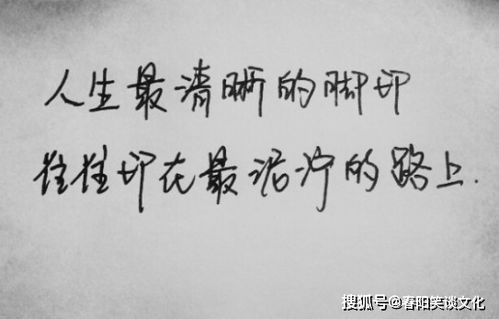 人生最清晰的脚印
往往印在最泥泞的路上.
搜狐号@春阳笑谈文化